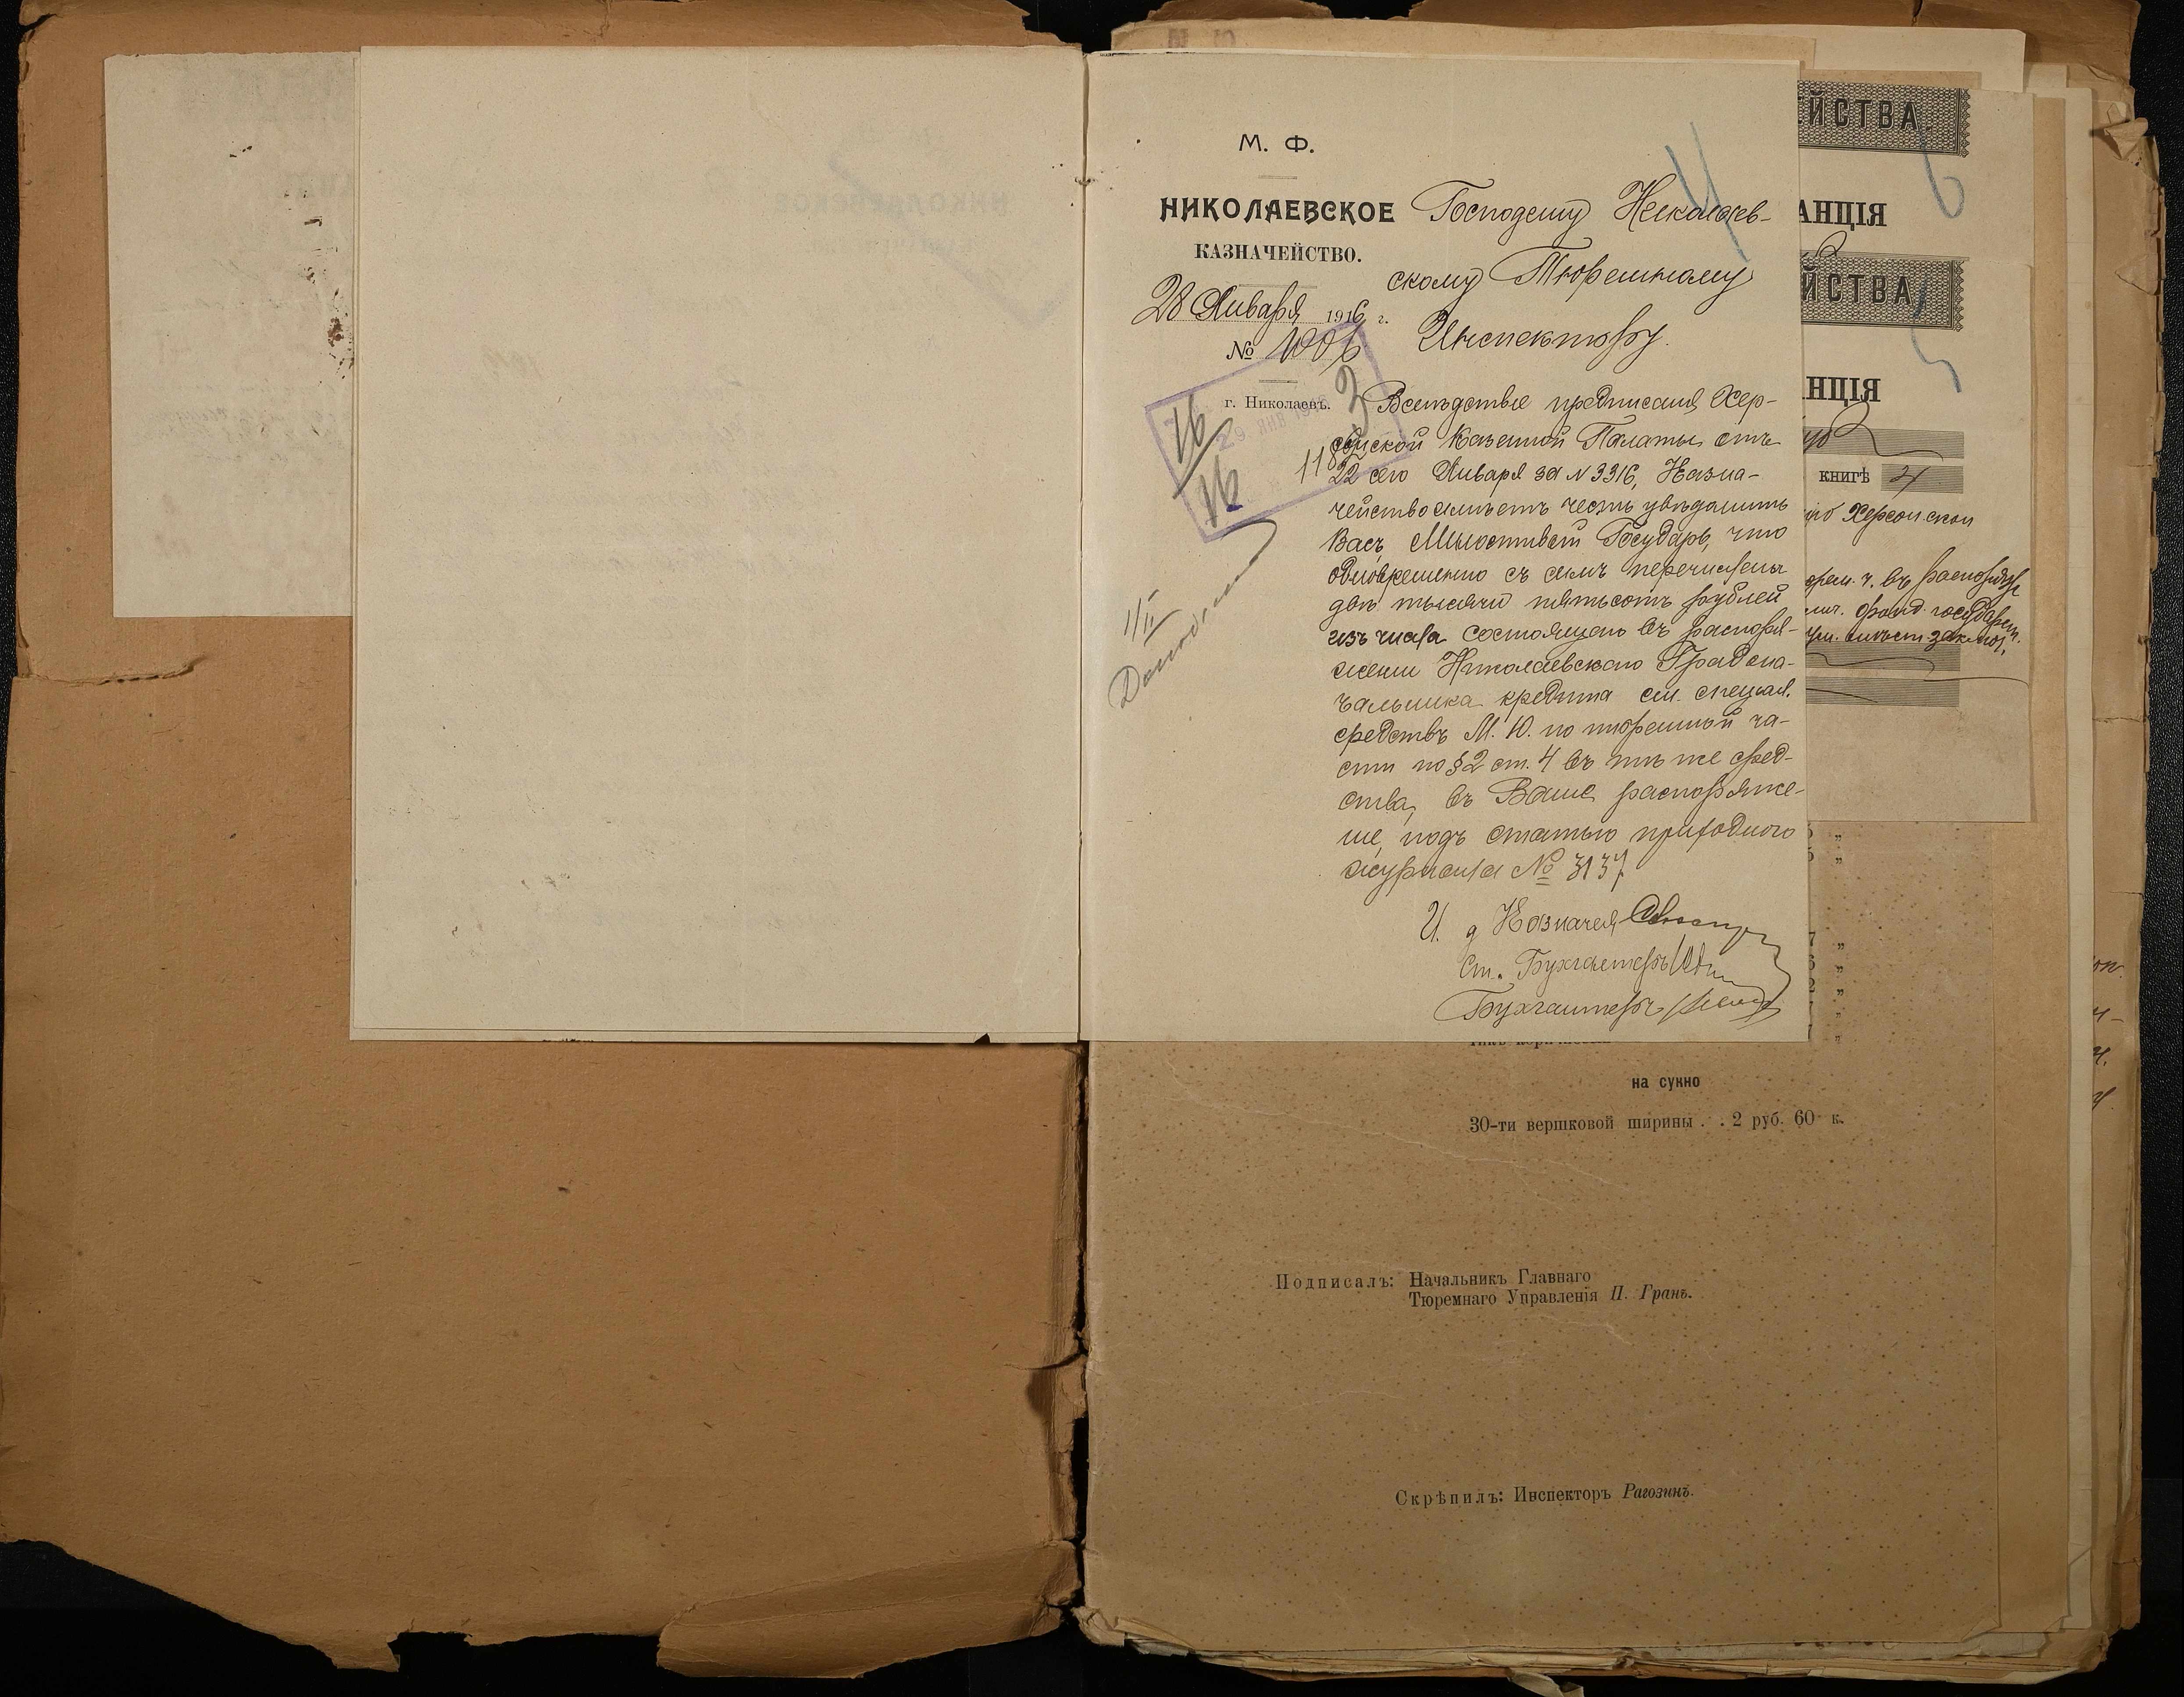 М. Ф.
НИКОЛАЕВСКОЕ
КАЗНАЧЕЙСТВО.
28 Января 1916 г.
№ 1006
г. Николаевъ.
29 ЯНВ 1916
16
12
118
3
4
1/II
Господину Николаев-
скому Тюремному
Инспектору.
Вслѣдствіе предписанія Хер-
сонской Казенной Палаты отъ
22 сего Января за N 3316, Казна-
чейство имѣетъ честь увѣдомить
Васъ, Милостивый Государь, что
одновременно съ симъ перечислены
двѣ тысячи пятьсотъ рублей
изъ числа состоящаго въ распоря-
женіи Николаевскаго Градона-
чальника кредита см. спеціал.
средствъ М. Ю. по тюремной ча-
сти по § 2 ст. 4 въ тѣ же сред-
ства, въ Ваше распоряже-
ніе, подъ статью приходного
журнала № 3137
И. д Казначея
Ст. Бухгалтеръ
Бухгалтеръ
ЕЙСТВА.
6
АНЦІЯ
ЙСТВА
5
НЦІЯ
книгѣ 4
Херсонской
рем. ч. въ распоряж
фонд. государст.
на сукно
30-ти вершковой ширины . . 2 руб. 60 к.
Подписалъ: Начальникъ Главнаго
Тюремнаго Управленія П. Гранъ.
Скрѣпилъ: Инспекторъ Рагозинъ.